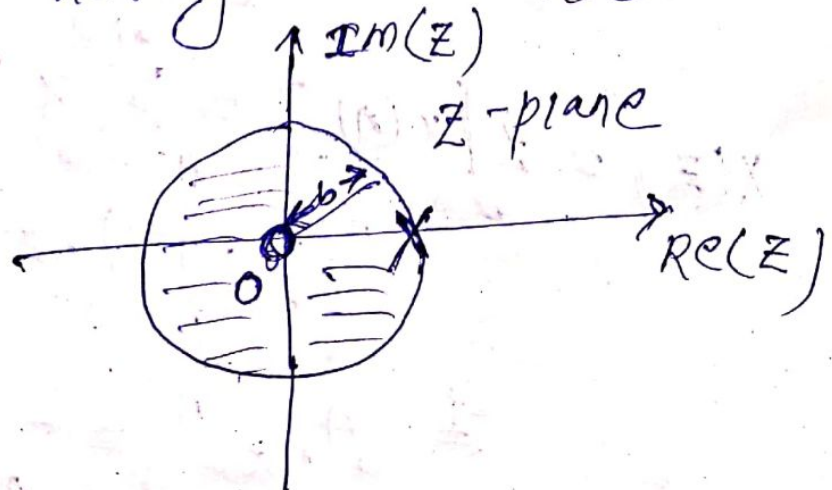 Im(Z)
Z-plane
b
Re(Z)
O